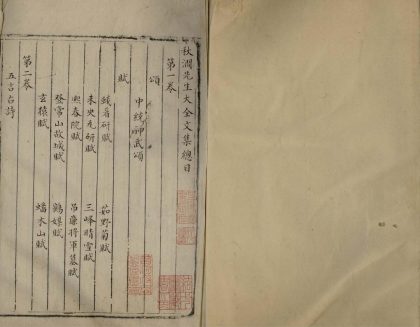 秋澗先生大全文集總目
第一卷
頌
中統神武頌
賦
鐵著研賦 茹野菊賦
未央瓦研賦 三峰晴雪賦
熙春阮賦 吊廉將軍墓賦
登常山故城賦 鶴媒賦
玄猿賦 蟠木山賦
第二卷
五言古詩